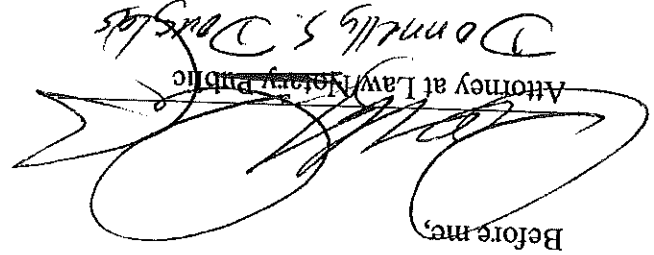 Before me,
Attorney at Law/Notary Public
Donnelly S. Douglas